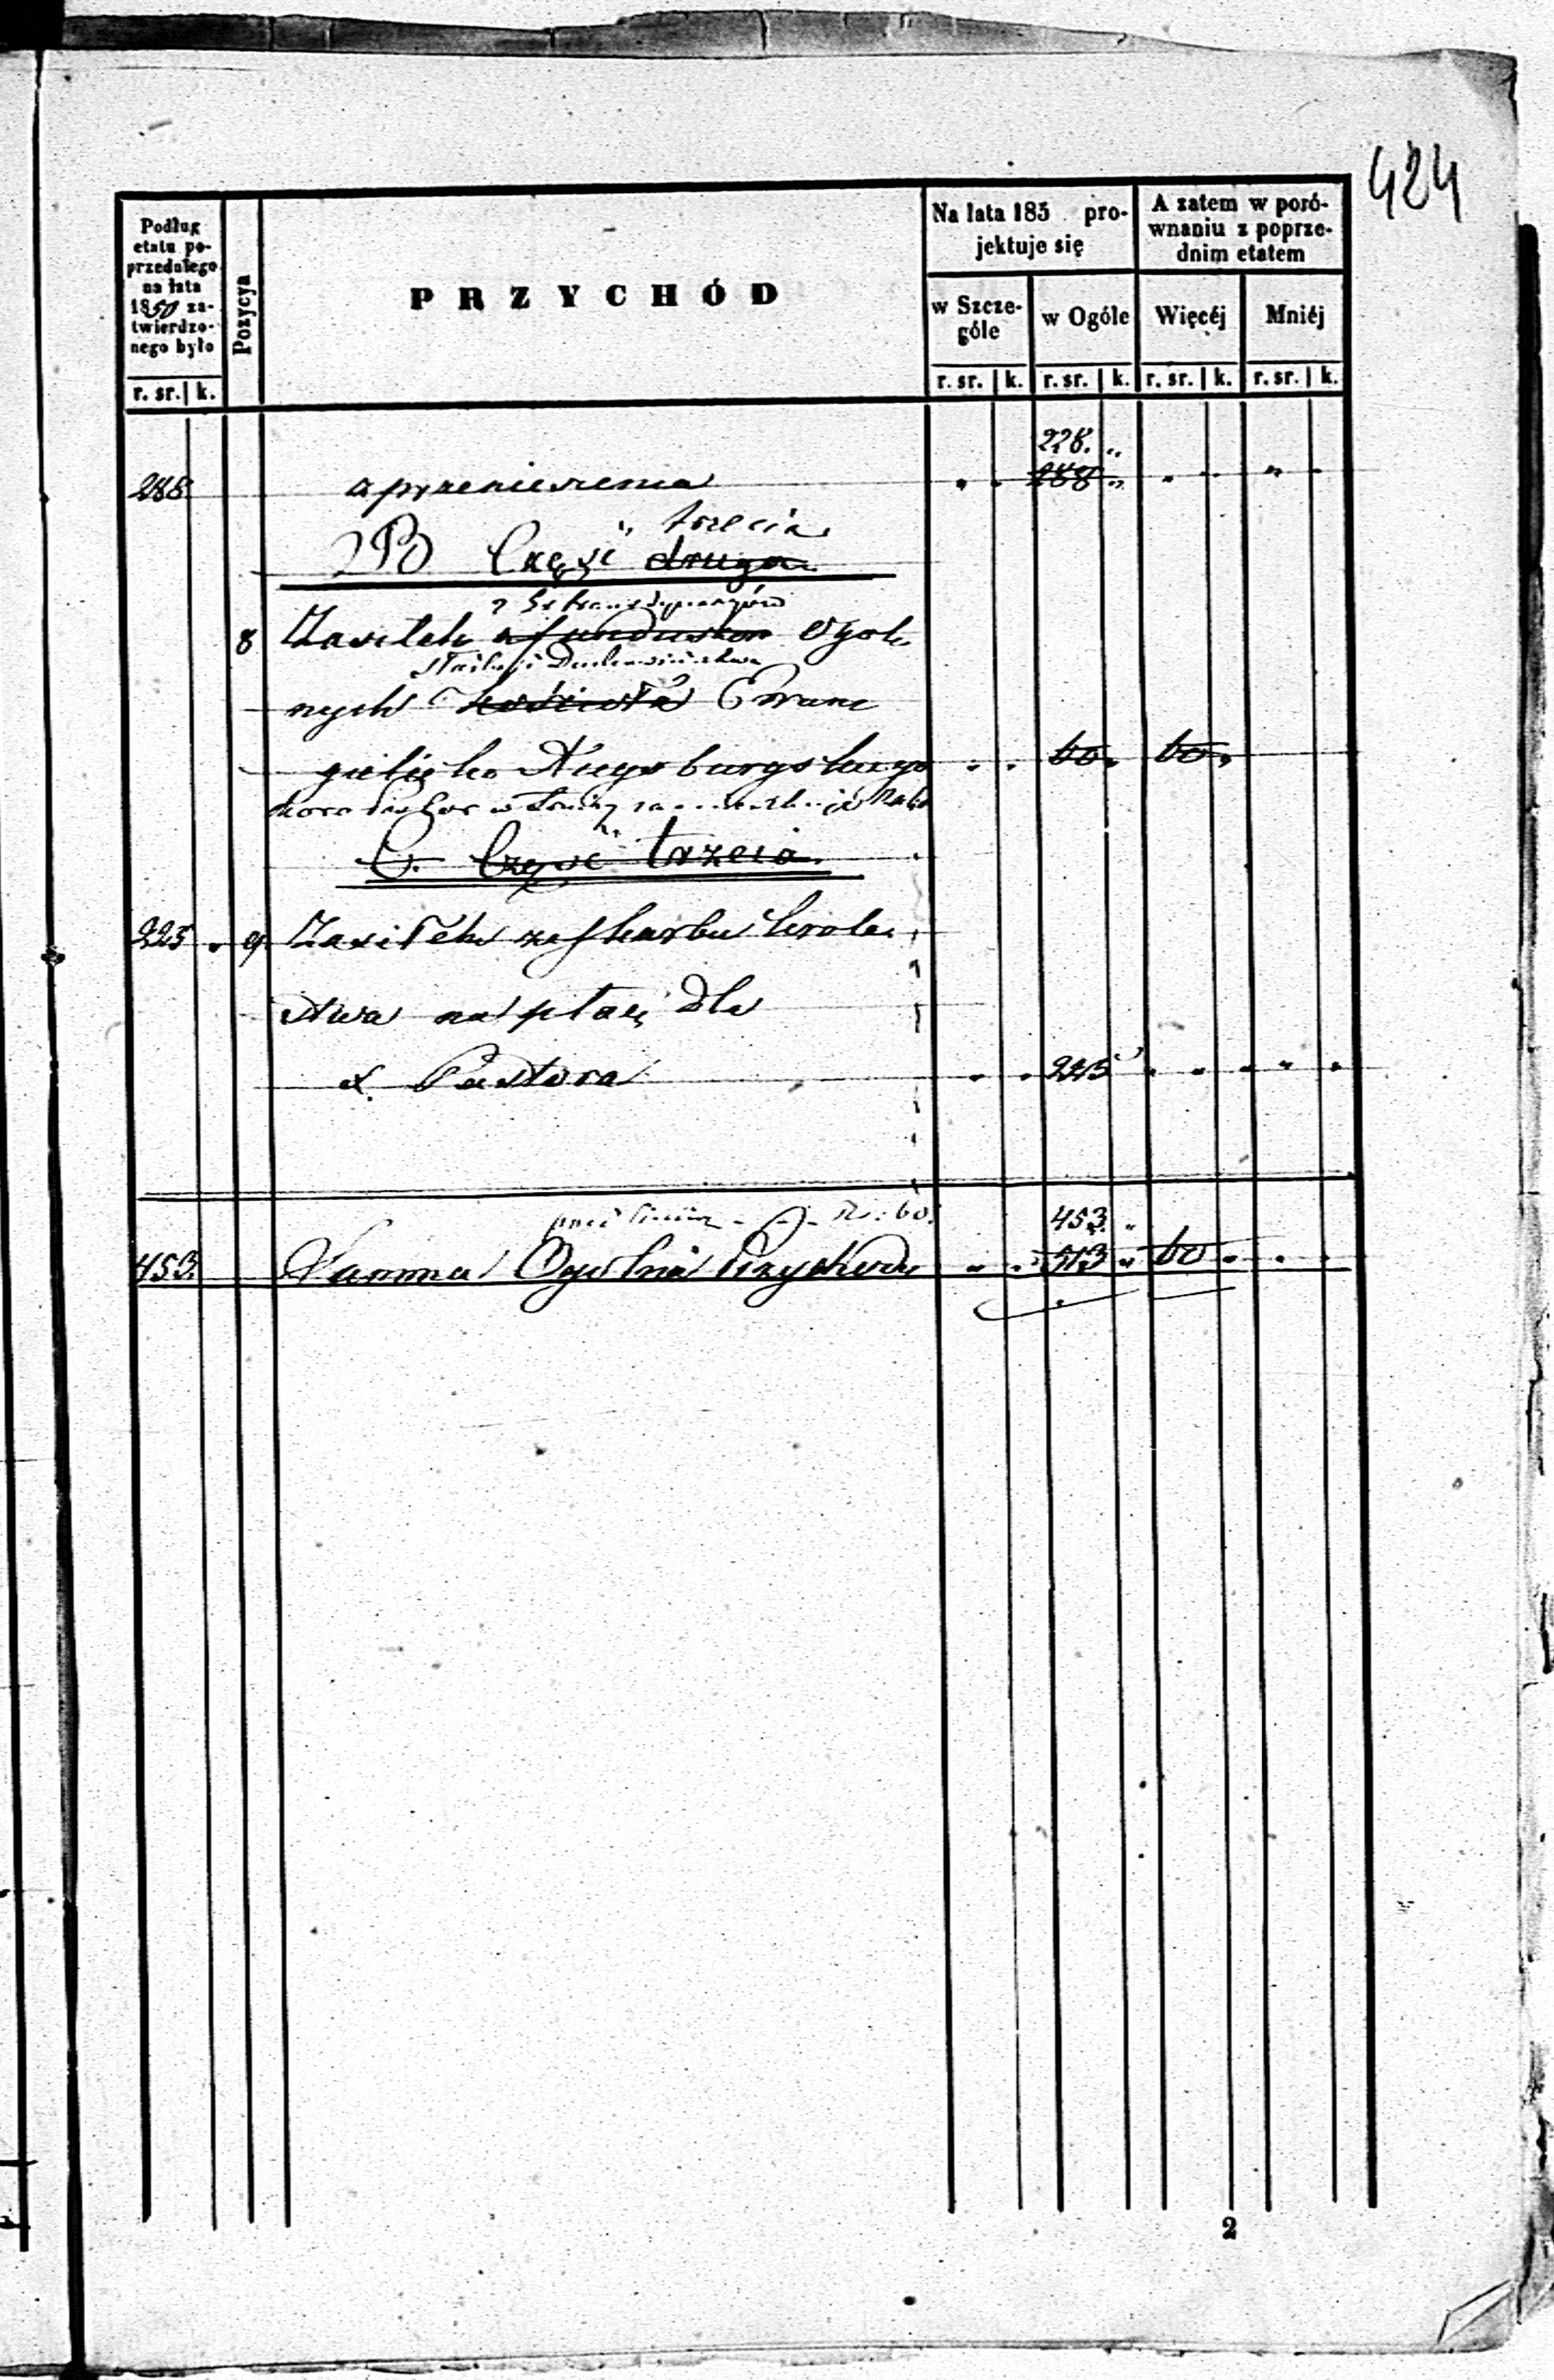 424
Podług
etatu po-
przedniego
na lata
1850 za-
twierdzo-
nego było
r. sr. k.
Pozycya
PRZYCHÓD
Na lata 185 . pro-
jektuje się
w Szcze-
góle
w Ogóle
r. sr. k. r. sr. k.
A zatem w poró-
wnaniu z poprze-
dnim etatem
Więcéj Mniéj
r. sr. k. r. sr. k.
228. "
z przeniesienia 288 "
trzecia
B Część druga
8 Zasiłek z funduszów Ogól
nych Kościoła Ewan
gielicko Augsburgskiego 60. 60.
C. Część trzecia
225 . 9 Zasiłek ze Skarbu Króle
stwa na płacę dla
X. Pastora 225
Rs: 60.
453. "
453. Summa Ogólna Przychodu 513 " 60
2